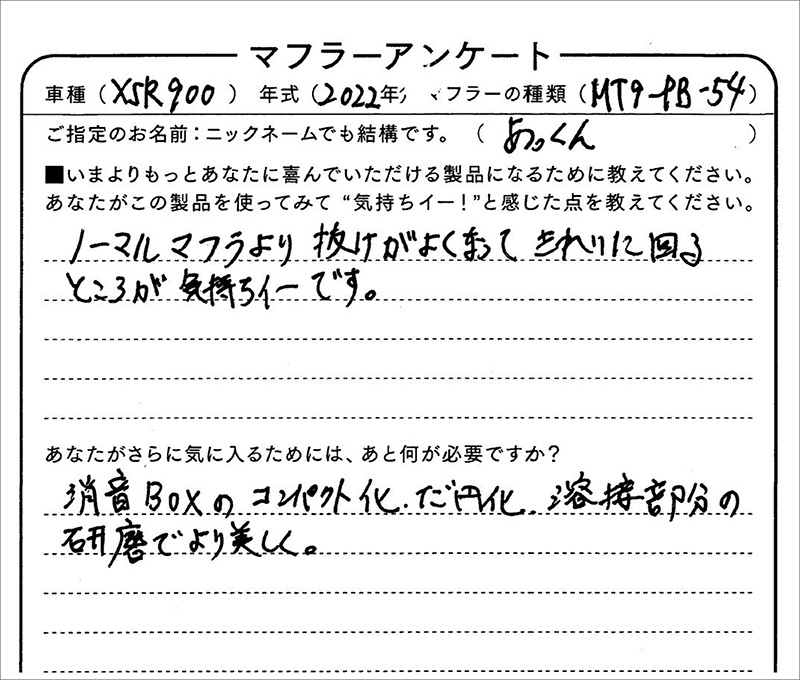 マフラーアンケート
車種（XSR900）　年式（2022年）　マフラーの種類（MT9-PB-54）
ご指定のお名前：ニックネームでも結構です。（あっくん）
■いまよりもっとあなたに喜んでいただける製品になるために教えてください。
あなたがこの製品を使ってみて“気持ちイー！”と感じた点を教えてください。
ノーマルマフラより 抜けがよくなって きれいに回る
ところが 気持ちイーです。
あなたがさらに気に入るためには、あと何が必要ですか？
消音BOXの コンパクト化．だ円化．溶接部分の
研磨でより美しく。